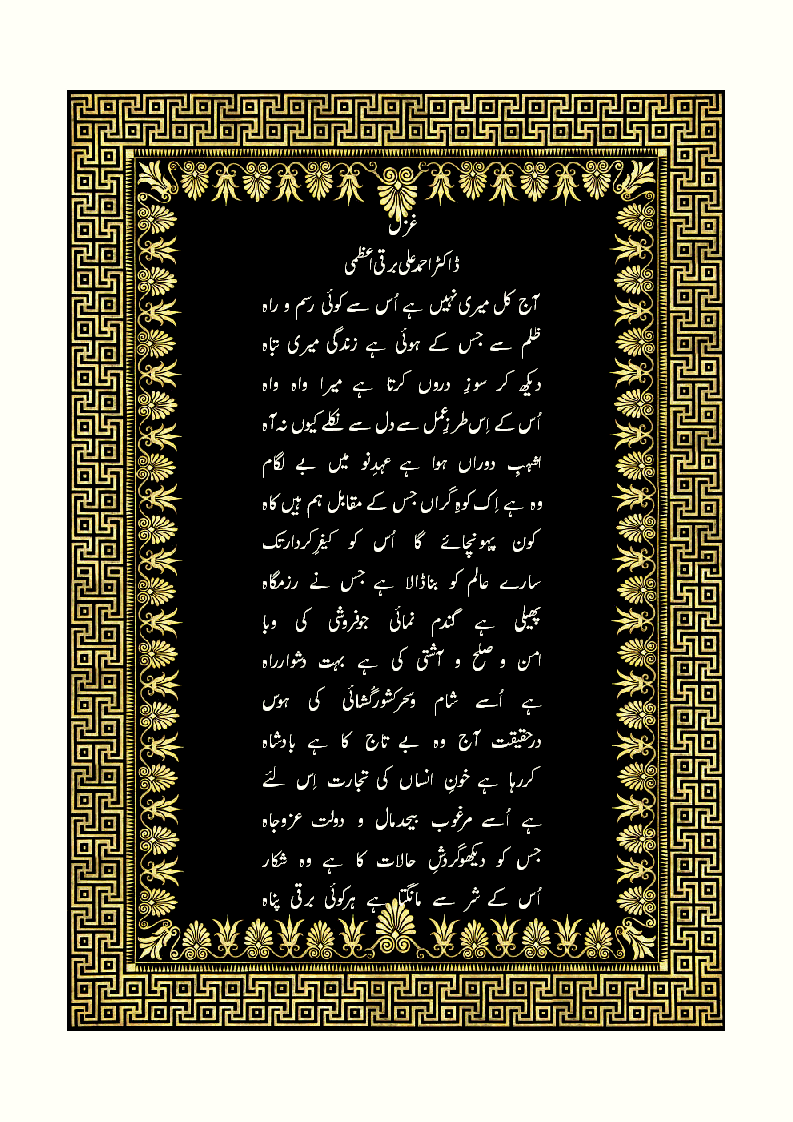 غزل
ڈاکٹر احمد علی برقی اعظمی
آج کل میری نہیں ہے اُس سے کوئی رسم و راہ
ظلم سے جس کے ہوئی ہے زندگی میری تباہ
دیکھ کر سوزِ دروں کرتا ہے میرا واہ واہ
اُس کے اِس طرزِ عمل سے دل سے نکلے کیوں نہ آہ
اشہبِ دوراں ہوا ہے عہدِ نو میں بے لگام
وہ ہے اِک کوہِ گراں جس کے مقابل ہم ہیں کاہ
کون پہونچائے گا اُس کو کیفرِ کردار تک
سارے عالم کو بناڈالا ہے جس نے رزمگاہ
پھیلی ہے گندم نمائی جوفروشی کی وبا
امن و صلح و آشتی کی ہے بہت دشوار راہ
ہے اُسے شام وسحر کشور کُشائی کی ہوس
درحقیقت آج وہ بے تاج کا ہے بادشاہ
کررہا ہے خونِ انساں کی تجارت اِس لئے
ہے اُسے مرغوب بیحد مال و دولت عزوجاہ
جس کو دیکھو گردشِ حالات کا ہے وہ شکار
اُس کے شر سے مانگتا ہے ہرکوئی برقی پناہ